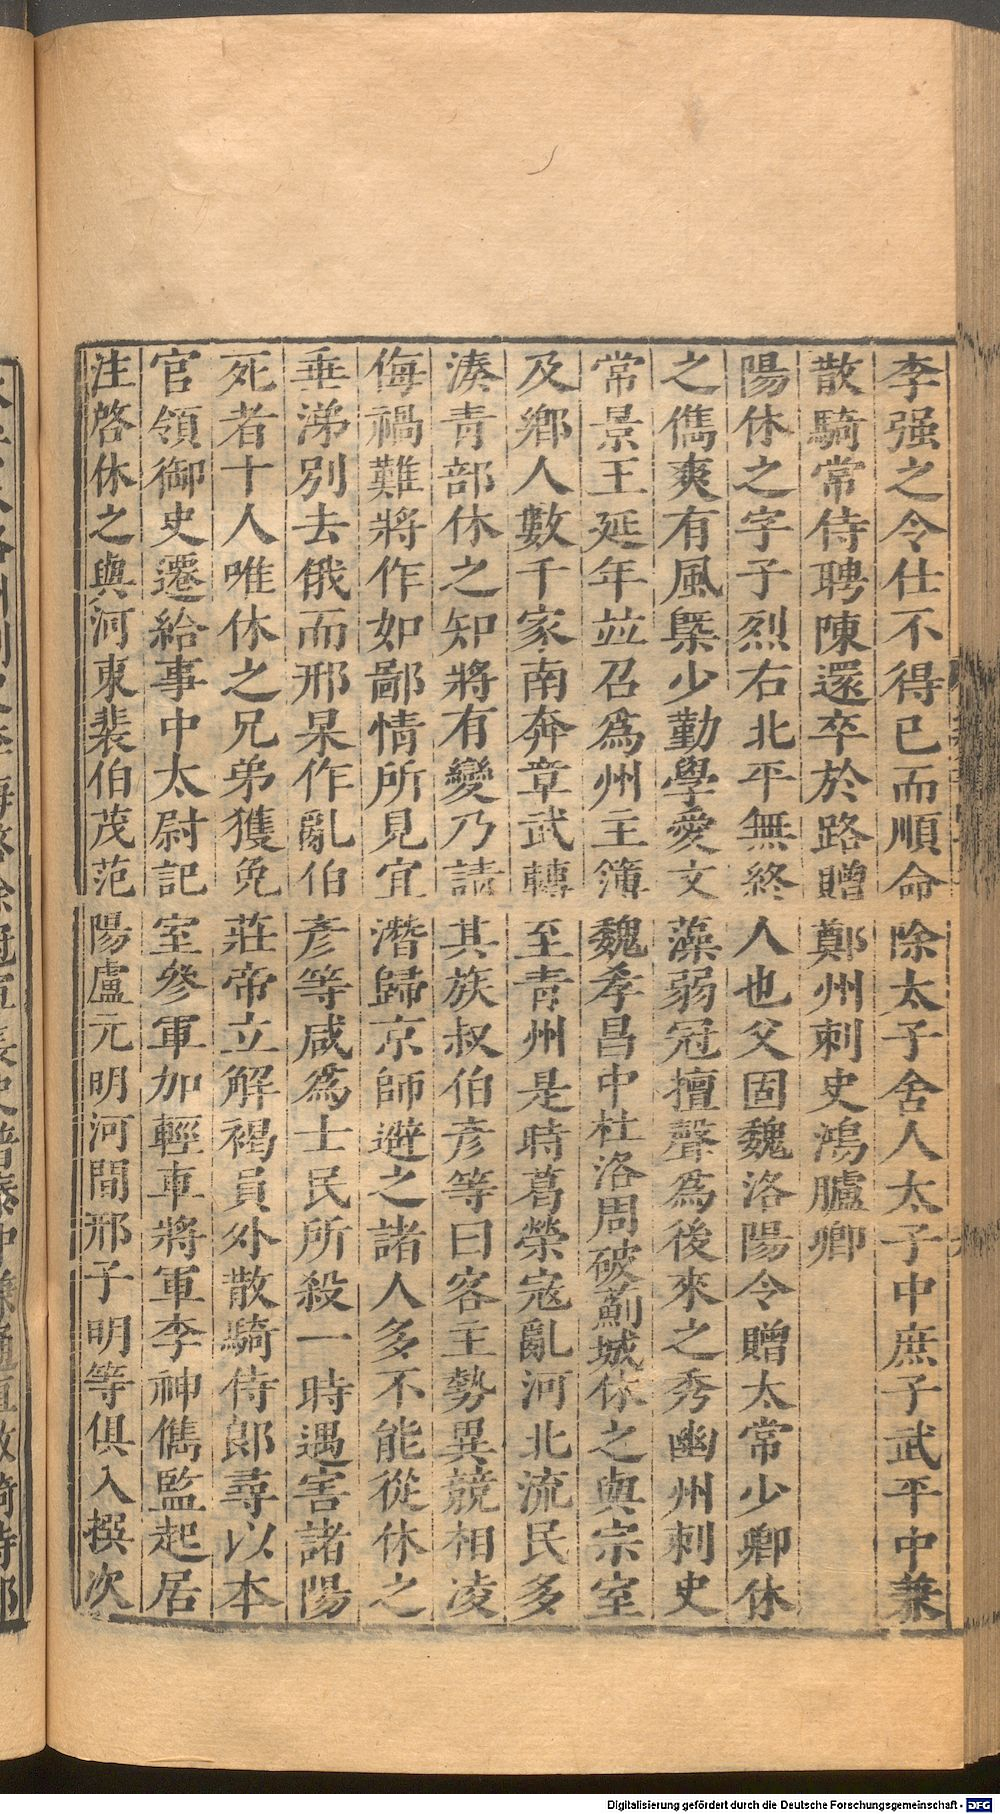 李强之令仕不得已而順命除太子舍人太子中庶子武平中兼
散騎常侍聘陳還卒於路贈鄭州刺史鴻臚卿
陽休之字子烈右北平無終人也父固魏洛陽令贈太常少卿休
之儁爽有風槩少勤學愛文藻弱冠擅聲爲後來之秀幽州刺史
常景王延年並召爲州主簿魏孝昌中杜洛周破薊城休之與宗室
及鄉人數千家南奔章武轉至青州是時葛榮寇亂河北流民多
湊青部休之知將有變乃請其族叔伯彦等曰客主勢異競相凌
侮禍難將作如鄙情所見宜潛歸京師避之諸人多不能從休之
垂涕別去俄而邢杲作亂伯彦等咸爲士民所殺一時遇害諸陽
死者十人唯休之兄弟獲免莊帝立解褐員外散騎侍郎尋以本
官領御史遷給事中太尉記室參軍加輕車將軍李神儁監起居
注啓休之與河東裴伯茂范陽盧元明河間邢子明等俱入撰次
Digitalisierung gefördert durch die Deutsche Forschungsgemeinschaft - DFG